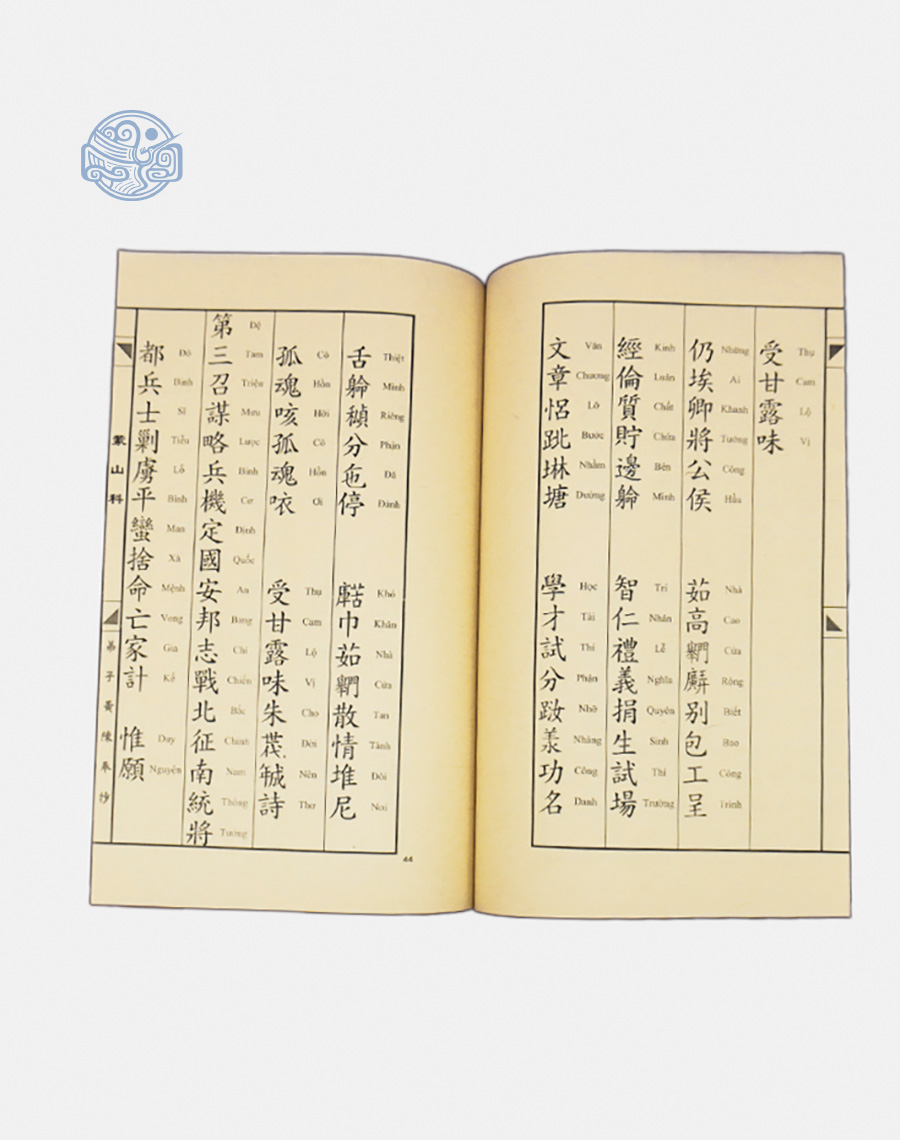 受甘露味
Thụ Cam Lộ Vị
仍埃卿將公侯 茹高別包工呈
Những Ai Khanh Tướng Công Hầu Nhà Cao Cửa Rộng Biết Bao Công Trình
經倫質貯邊 智仁禮義捐生試場
Kinh Luân Chất Chứa Bên Mình Trí Nhân Lễ Nghĩa Quyên Sinh Thí Trường
文章塘 學才試分功名
Văn Chương Lỡ Bước Nhầm Đường Học Tài Thi Phận Nhỡ Nhàng Công Danh
舌分停 巾茹散情堆尼
Thiệt Mình Riêng Phận Đã Đành Khó Khăn Nhà Cửa Tan Tành Đòi Nơi
孤魂咳孤魂 受甘露味朱詩
Cô Hồn Hỡi Cô Hồn Ơi Thụ Cam Lộ Vị Cho Đời Nên Thơ
第三召謀略兵機定國安邦志戰北征南統將
Đệ Tam Triệu Mưu Lược Binh Cơ Định Quốc An Bang Chí Chiến Bắc Chinh Nam Thống Tướng
都兵士剿虜平蠻捨命亡家計 惟願
Đô Binh Sĩ Tiễu Lỗ Bình Man Xả Mệnh Vong Gia Kế Duy Nguyện
蒙山科
弟子黃陳奉抄
44